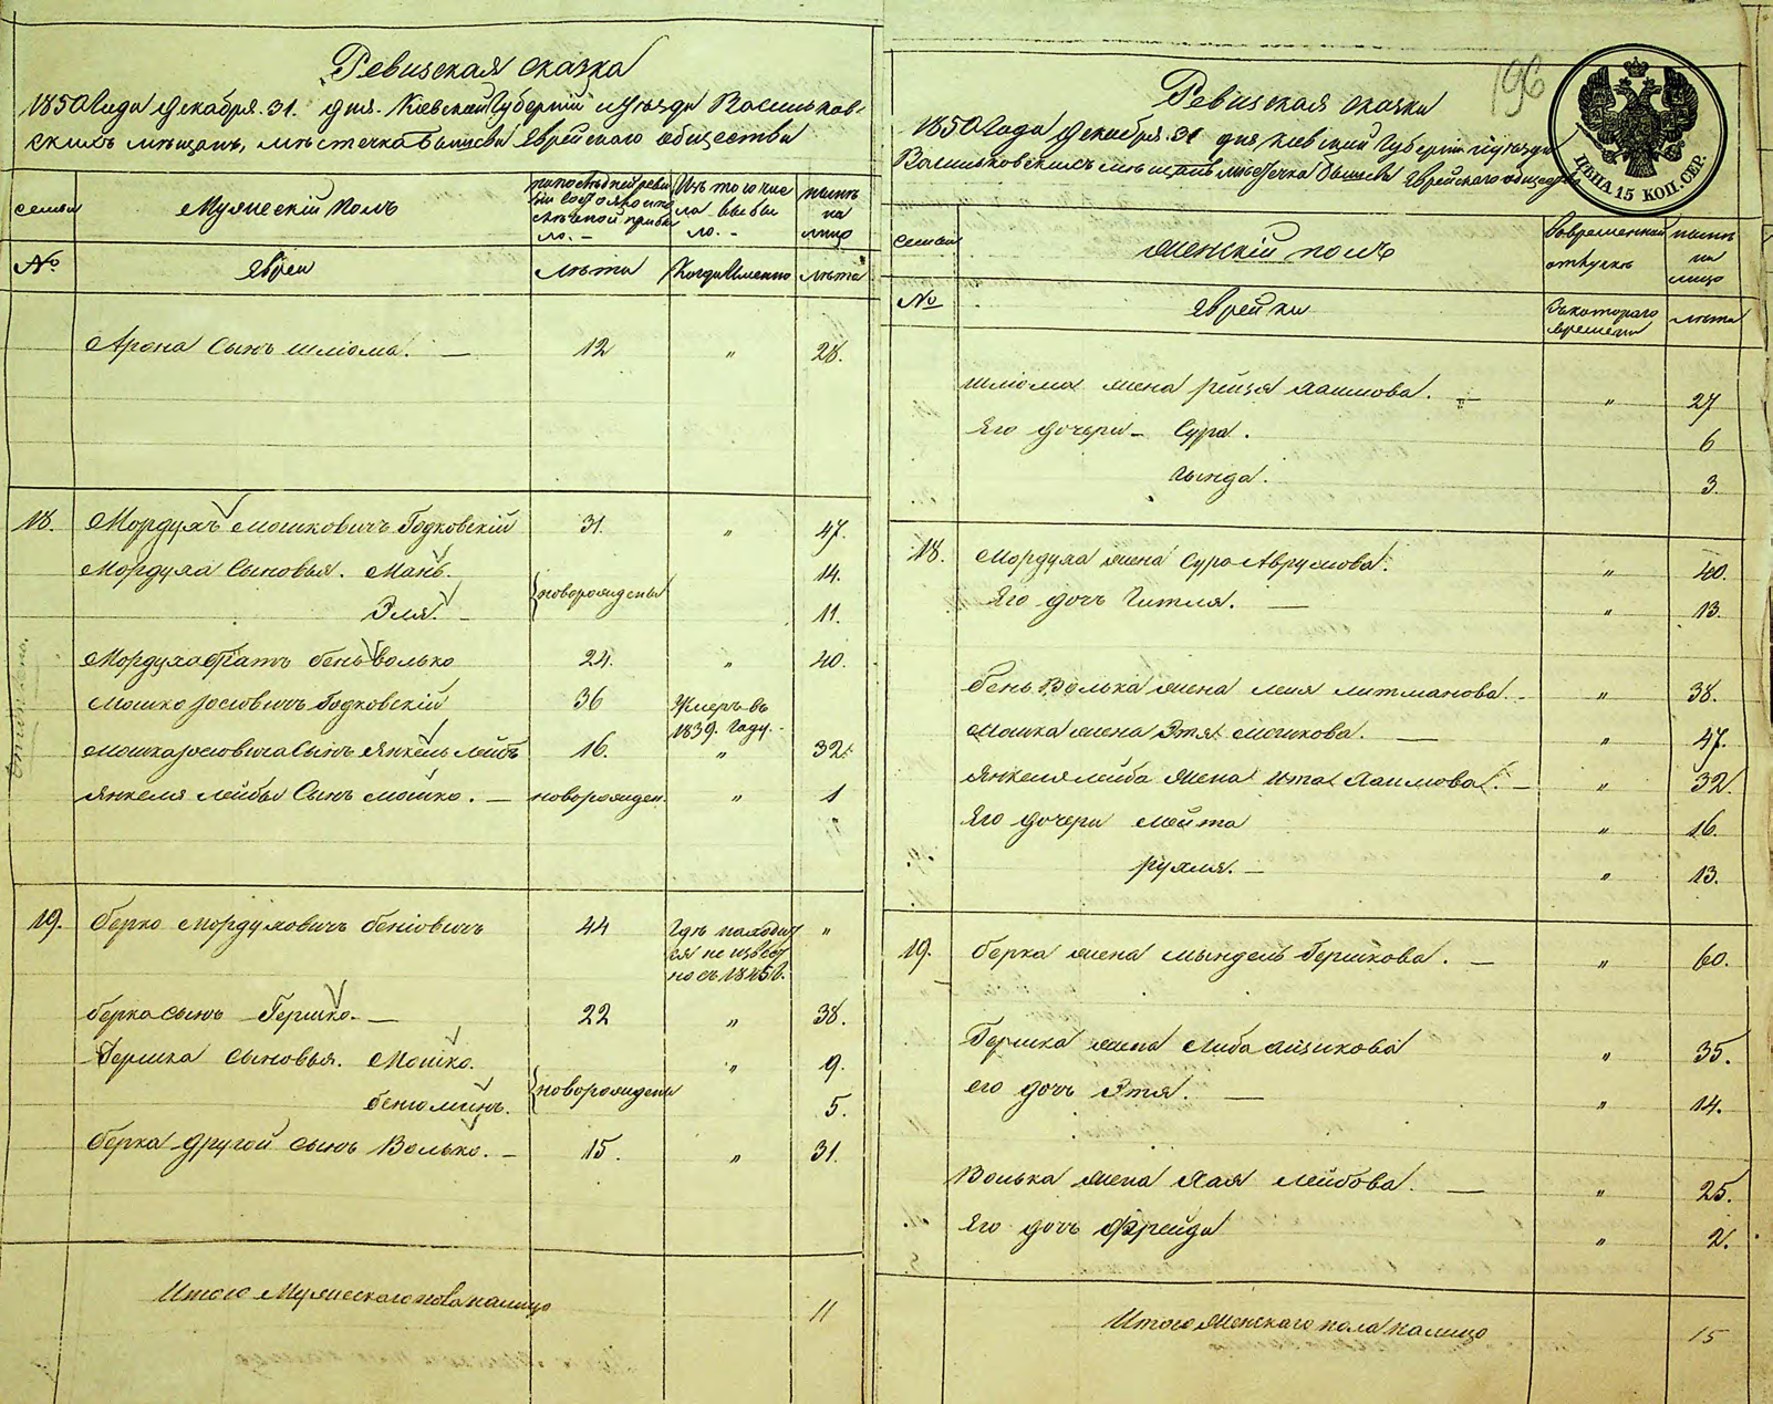 Ревизская сказка
1850 Года Декабря 31. дня. Кіевской Губерніи и Уезда Васильков-
скихъ мѣщанъ, мѣстечка Бышева Еврейскаго общества
семьи
Мужескій Полъ
по последней реви
зіи состояло и по
слѣ оной прибы
ло. -
Изъ того чис
ла выбы
ло. -
нынѣ
на
лицо
№
Евреи
лѣта
Когда Именно
лѣта
Арона Сынъ шліома. — 12 " 28.
18. Мордухъ Мошковичъ Годковскій 31. " 47.
Мордуха Сыновья. Мань. 14.
новорождены
Эля. - 11.
Мордуха братъ бень волько 24. " 40.
Мошко Іосіовичъ Годковскій 36 Умеръ въ
1839. Году. -
Мошка Іосіовича Сынъ Янкель Лейбъ 16. " 32.
Янкеля Лейбы Сынъ Мошко. — новорожден. " 1
19. Берко Мордуховичъ Беніовичъ 44 Гдѣ находит "
ся не извѣст
но съ 1845 г.
берка сынъ Гершко. — 22 " 38.
Гершка Сыновья. Мошко. " 9.
новорождены
беніоминъ. 5.
Берка другой сынъ Волько. — 15. " 31.
Итого Мужескаго пола налицо 11
196
Ревизская сказка
1850 Года Декабря 31 дня, Кіевской Губерніи и уезда
Васильковскихъ мѣщанъ мѣстечка Бышева Еврейскаго общества
ЦѢНА 15 КОП. СЕР.
семьи
Женскій полъ
Вовременной
отлучкѣ
нынѣ
на
лицо
№
Еврейки
Съкотораго
времени
лѣта
шліома жена рейзя Хаимова. — " 27
Его дочери - Сура. 6
гинда. 3
18. Мордуха жена Сура Аврумова. " 40.
Его дочь Гитля. — " 13.
бень Волька жена лея литманова. - " 38.
Мошка жена Этя Мошкова. — " 47.
Янкеля лейба жена ита Хаимова. — " 32.
Его дочери Мейта " 16.
рухля. — " 13.
19. Берка жена Мындель Гершкова. — " 60.
Гершка жена Либа Айзикова " 35.
его дочь Этя. — " 14.
Волька жена Хая Лейбова. — " 25.
Его дочь Фрейда " 2.
Итого Женскаго пола налицо 15